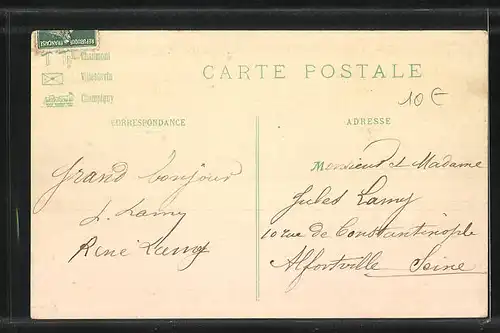 REPUBLIQUE FRANÇAISE
Villemomble
Champigny
CARTE POSTALE
10 €
CORRESPONDANCE
ADRESSE
Grand bonjour
J. Lamy
René Lamy
Monsieur et Madame
Jules Lamy
10 rue de Constantinople
Alfortville Seine